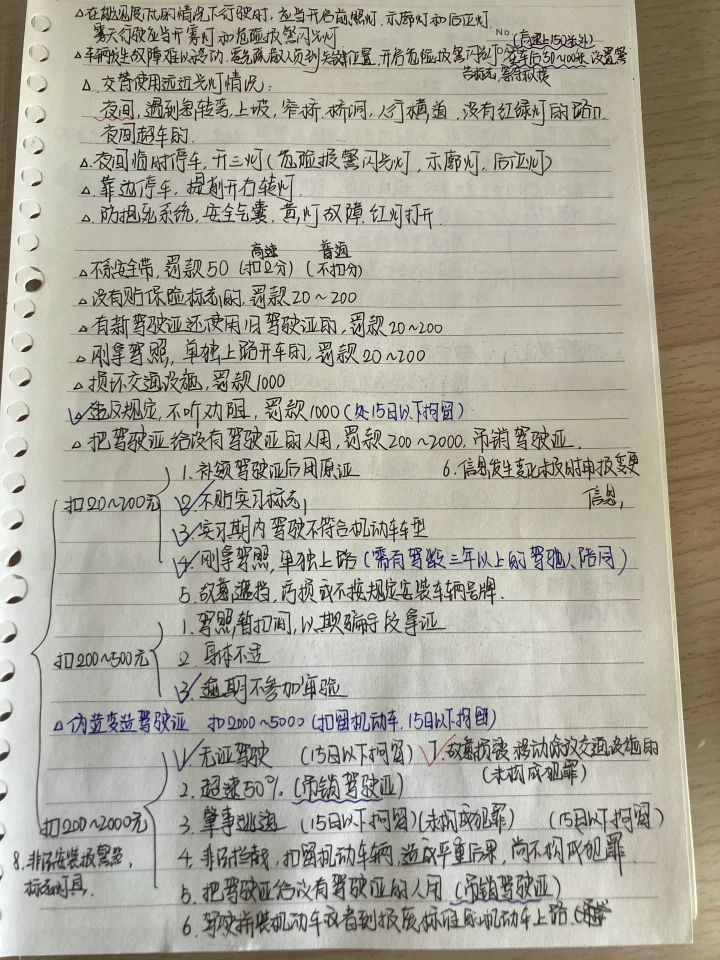 △在能见度低的情况下行驶时,应当开启前照灯.示廓灯和后位灯
雾天行驶应当开雾灯和危险报警闪光灯
No. (高速上150米外)
△车辆发生故障难以移动,首先疏散人员到安全位置,开启危险报警闪光灯 在车后50~100米设置警
告标志,等待救援
△ 交替使用远近光灯情况:
夜间,遇到急转弯,上坡,窄桥.桥洞,人行横道,没有红绿灯的路口.
夜间超车的.
△.夜间临时停车,开三灯(危险报警闪光灯,示廓灯,后位灯)
△.靠边停车,提前开右转灯.
△.防抱死系统,安全气囊,黄灯故障,红灯打开.
高速 普通
△不系安全带,罚款50(扣2分)(不扣分)
△没有贴保险标志的,罚款20~200
△有新驾驶证还使用旧驾驶证的,罚款20~200
△刚拿驾照,单独上路开车的,罚款20~200
△损坏交通设施,罚款1000
△违反规定,不听劝阻,罚款1000(处15日以下拘留)
△把驾驶证给没有驾驶证的人用,罚款200~2000,吊销驾驶证.
1.补领驾驶证后用原证 6.信息发生变化未及时申报变更
信息,
扣20~200元 2.不贴实习标志,
3.实习期内驾驶不符合机动车车型
4.刚拿驾照,单独上路(需有驾龄三年以上的驾驶人陪同)
5.故意遮挡,污损或不按规定安装车辆号牌.
1.驾照暂扣间,以欺骗手段拿证
扣200~500元 2.身体不适
3.逾期不参加审验
△伪造变造驾驶证 扣2000~5000(扣留机动车.15日以下拘留)
1.无证驾驶 (15日以下拘留) 7.故意损毁移动涂改交通设施的
(未构成犯罪)
2.超速50%.(吊销驾驶证)
扣200~2000元 3.肇事逃逸 (15日以下拘留)(未构成犯罪) (15日以下拘留)
8.非法安装报警器, 4.非法拦截,扣留机动车辆,造成严重后果,尚不构成犯罪.
标志灯具. 5.把驾驶证给没有驾驶证的人用(吊销驾驶证)
6.驾驶拼装机动车或者到报废标准的机动车上路.